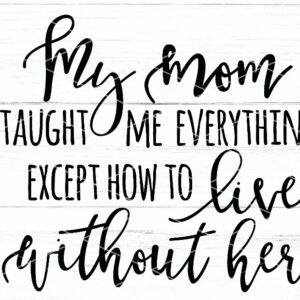 My mom
TAUGHT ME EVERYTHIN
EXCEPT HOW TO live
without her